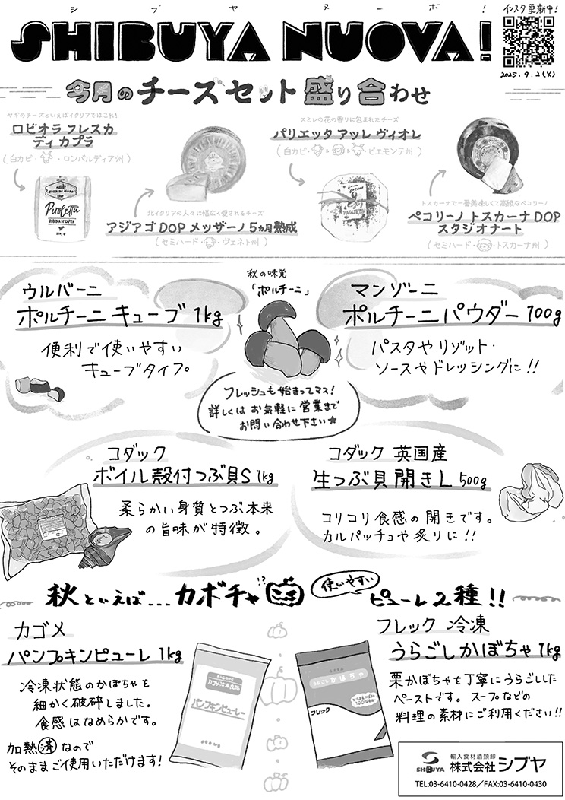 シブヤヌーボ!
SHIBUYA NUOVA!
インスタ更新中!
2025.9.2(火)
今月のチーズセット盛り合わせ
ヤギのチーズといえばイタリアではこれ!
ロビオラ フレスカ
ディカプラ
(白カビ・ロンバルディア州)
イタリアの人々に幅広く愛されるチーズ
アジアゴDOP メッザーノ 5ヵ月熟成
(セミハード・ヴェネト州)
スミレの花の香りに包まれたチーズ
パリエッタ アッレ ヴィオレ
(白カビ・ピエモンテ州)
ペコリーノ トスカーナDOP
スタジオナート
(セミハード・トスカーナ州)
秋の味覚
「ポルチーニ」
ウルバーニ
ポルチーニ キューブ 1kg
便利で使いやすい
キューブタイプ
マンゾーニ
ポルチーニ パウダー 100g
パスタやリゾット・
ソースやドレッシングに!!
フレッシュも始まってマス!
詳しくはお気軽に営業まで
お問い合わせ下さい☆
コダック
ボイル殻付つぶ貝S 1kg
柔らかい身質とつぶ本来
の旨味が特徴。
コダック 英国産
生つぶ貝開きL 500g
コリコリ食感の開きです。
カルパッチョや炙りに!!
秋といえば...カボチャ!? 使いやすい ピューレ2種!!
カゴメ
パンプキンピューレ 1kg
冷凍状態のかぼちゃを
細かく破砕しました。
食感はなめらかです。
加熱済なので
そのままご使用いただけます!
パンプキンピューレー
フレック 冷凍
うらごしかぼちゃ 1kg
栗かぼちゃを丁寧にうらごしした
ペーストです。スープなどの
料理の素材にご利用ください!!
フレック
SHIBUYA
輸入食材造詣師
株式会社シブヤ
TEL:03-6410-0428/FAX:03-6410-0430